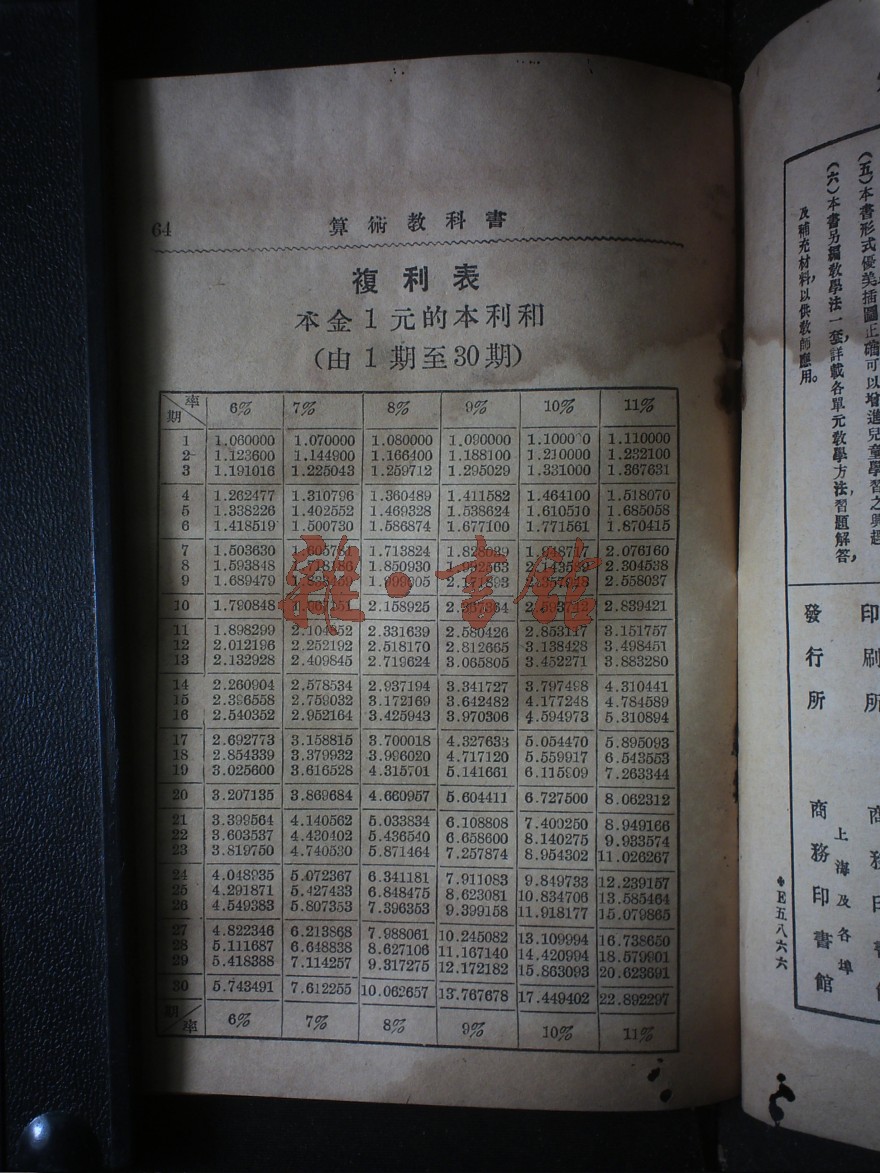 64
算術教科書
複利表
本金1元的本利和
(由1期至30期)
率 期 6% 7% 8% 9% 10% 11%
1 1.060000 1.070000 1.080000 1.090000 1.110000
2 1.123600 1.144900 1.166400 1.188100 1.210000 1.232100
3 1.191016 1.225043 1.259712 1.295029 1.331000 1.367631
4 1.262477 1.310796 1.360489 1.411582 1.464100 1.518070
5 1.338226 1.402552 1.469328 1.538624 1.610510 1.685058
6 1.418519 1.500730 1.586874 1.677100 1.771561 1.870415
7 1.503630 1.713824 2.076160
8 1.593848 1.850930 2.304538
9 1.689479 2.558037
10 1.790848 2.158925 2.839421
11 1.898299 2.331639 2.580426 3.151757
12 2.012196 2.252192 2.518170 2.812665 3.138428 3.498451
13 2.132928 2.409845 2.719624 3.065805 3.452271 3.883280
14 2.260904 2.578534 2.937194 3.341727 3.797498 4.310441
15 2.396558 2.759032 3.172169 3.642482 4.177248 4.784589
16 2.540352 2.952164 3.425943 3.970306 4.594973 5.310894
17 2.692773 3.158815 3.700018 4.327633 5.054470 5.895093
18 2.854339 3.379932 3.996020 4.717120 5.559917 6.543553
19 3.025600 3.616528 4.315701 5.141661 6.115909 7.263344
20 3.207135 3.869684 4.660957 5.604411 6.727500 8.062312
21 3.399564 4.140562 5.033834 6.108808 7.400250 8.949166
22 3.603537 4.430402 5.436540 6.658600 8.140275 9.933574
23 3.819750 4.740530 5.871464 7.257874 8.954302 11.026267
24 4.048935 5.072367 6.341181 7.911083 9.849733 12.239157
25 4.291871 5.427433 6.848475 8.623081 10.834706 13.585464
26 4.549383 5.807353 7.396353 9.399158 11.918177 15.079865
27 4.822346 6.213868 7.988061 10.245082 13.109994 16.738650
28 5.111687 6.648838 8.627106 11.167140 14.420994 18.579901
29 5.418388 7.114257 9.317275 12.172182 15.863093 20.623691
30 5.743491 7.612255 10.062657 13.767678 17.449402 22.892297
期 率 6% 7% 8% 9% 10% 11%
雜·書館
(五)本書形式優美插圖正確可以增進兒童學習之興趣
(六)本書另編教學法一套,詳載各單元教學方法,習題解答,
及補充材料,以供教師應用。
印刷所
發行所
上海及各埠
商務印書館
E五八六六